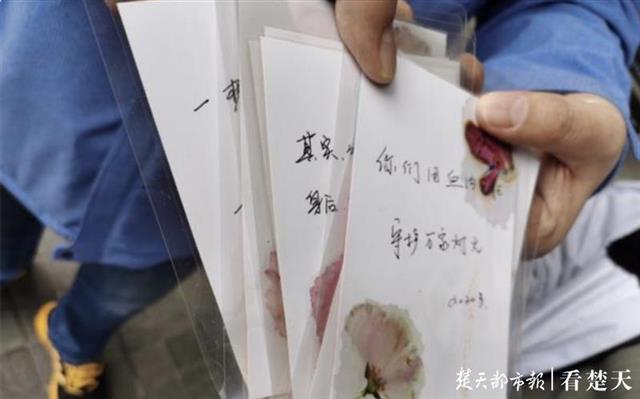 一
一
其实
身后
你们用血
守护万家灯火
2020.3.
楚天都市报 | 看楚天